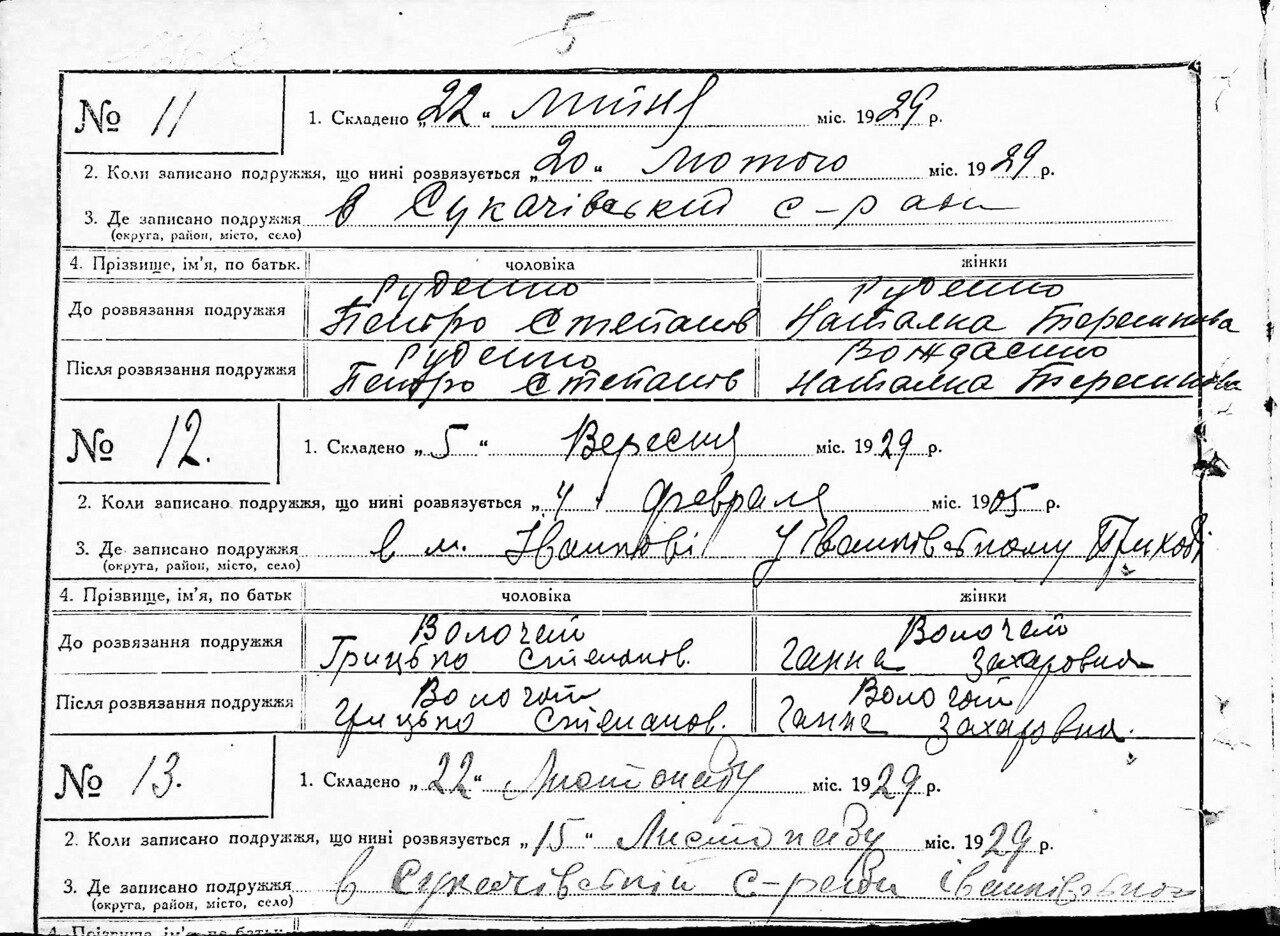 5
№ 11
1. Складено „22“ Липня міс. 1929 р.
2. Коли записано подружжя, що нині розвязується „20“ Лютого міс. 1929 р.
3. Де записано подружжя в Сукачівській с-раді
(округа, район, місто, село)
4. Прізвище, ім'я, по батьк. чоловіка жінки
Руденко Руденко
До розвязання подружжя Петро Степанов Наталка
Руденко
Після розвязання подружжя Петро Степанов Наталка
№ 12.
1. Складено „5“ Вересня міс. 1929 р.
2. Коли записано подружжя, що нині розвязується „4“ февраля міс. 1905 р.
3. Де записано подружжя в м. Іванкові У Іванківському Приході
(округа, район, місто, село)
4. Прізвище, ім'я, по батьк чоловіка жінки
Волочай Волочай
До розвязання подружжя Грицько Степанов. Ганна Захаровна
Волочай Волочай
Після розвязання подружжя Грицько Степанов. Ганна Захаровна.
№ 13.
1. Складено „22“ Листопаду міс. 1929 р.
2. Коли записано подружжя, що нині розвязується „15“ Листопаду міс. 1929 р.
3. Де записано подружжя в Сукачівській с-ради Іванківського
(округа, район, місто, село)
4. Прізвище, ім'я, по батьк.